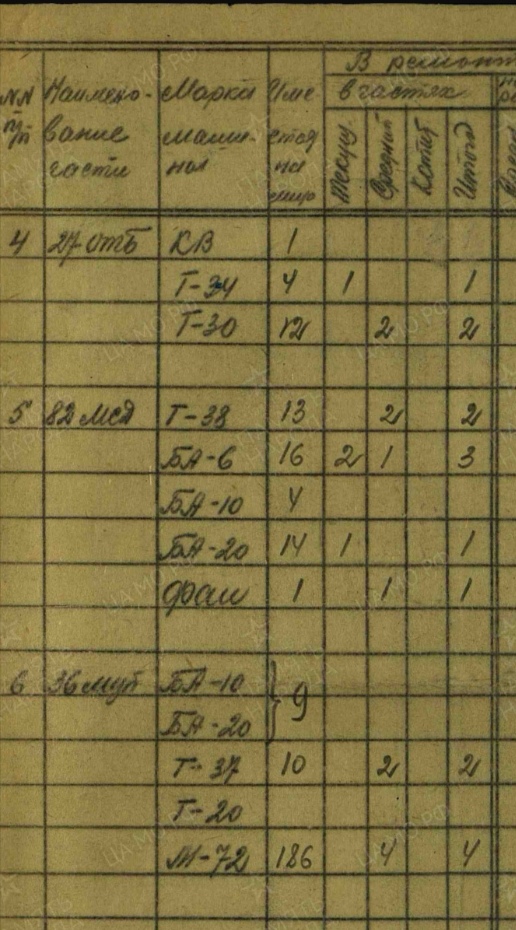 В ремонт
NN п/п Наимено- Марки Име- в частях
вание маши- ется
части ной на Текущ. Средний Капит Итого
лицо
4 27 отб КВ 1
Т-34 4 1 1
Т-30 12 2 2
5 82 мсд Т-38 13 2 2
БА-6 16 2 1 3
БА-10 4
БА-20 14 1 1
ФАИ 1 1 1
6 36 мцп БА-10 } 9
БА-20
Т-37 10 2 2
Т-20
М-72 186 4 4